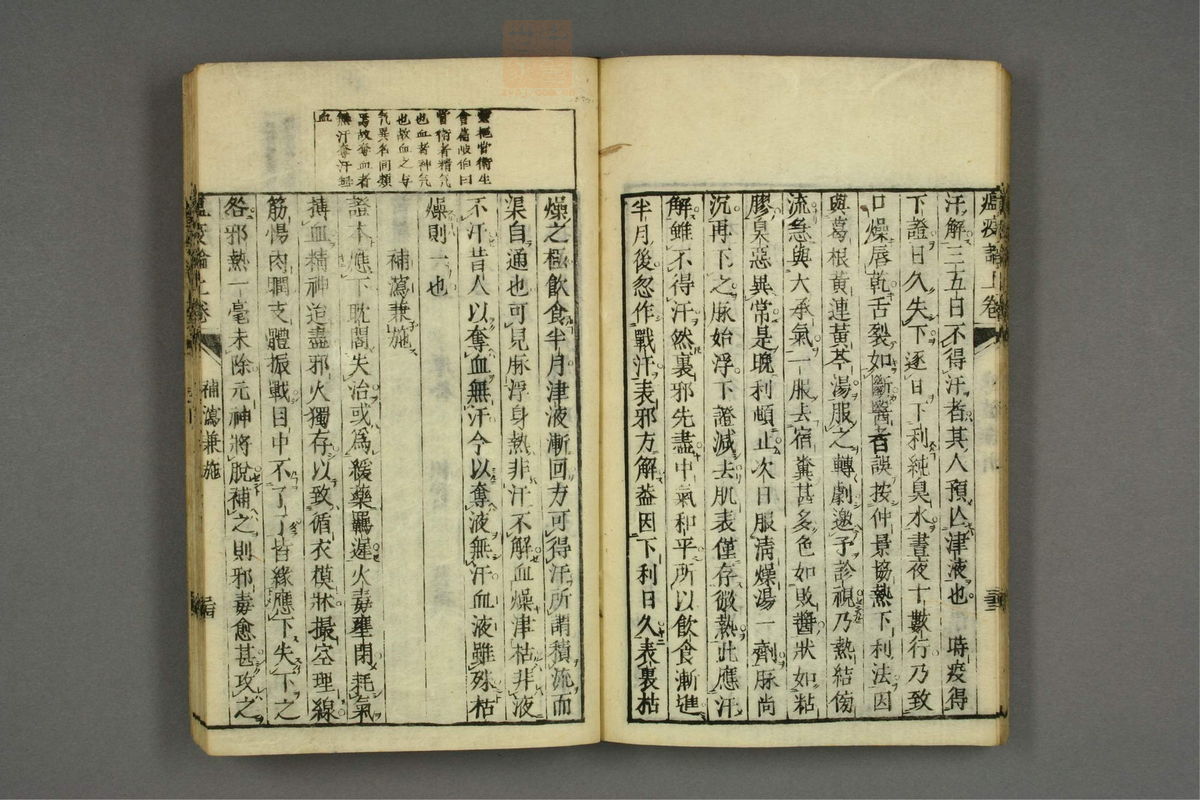 瘟疫論上卷
汗解三五日不得汗者其人預亾津液也 時疫得
下證日久失下逐日下利純臭水晝夜十數行乃致
口燥唇乾舌裂如斷醫者誤按仲景協熱下利法因
與葛根黃連黃芩湯服之轉劇邀予診視乃熱結傍
流急與大承氣一服去宿糞甚多色如敗醬狀如粘
膠臭惡異常是晚利頓止次日服清燥湯一劑脉尚
沉再下之脉始浮下證減去肌表僅存微熱此應汗
解雖不得汗然裏邪先盡中氣和平所以飲食漸進
半月後忽作戰汗表邪方解葢因下利日久表裏枯
靈樞營衛生
會篇岐伯曰
營衛者精气
也血者神气
也故血之与
气異名同類
焉故奪血者
無汗奪汗者
無血
燥之極飲食半月津液漸回方可得汗所謂積流而
渠自通也可見脉浮身熱非汗不解血燥津枯非液
不汗昔人以奪血無汗今以奪液無汗血液雖殊枯
燥則一也
補瀉兼施
證本應下耽閣失治或爲緩藥羈遲火毒壅閉耗氣
搏血精神迨盡邪火獨存以致循衣摸牀撮空理線
筋惕肉瞤支體振戰目中不了了皆緣應下失下之
咎邪熱一毫未除元神將脫補之則邪毒愈甚攻之
瘟疫論上卷 補瀉兼施